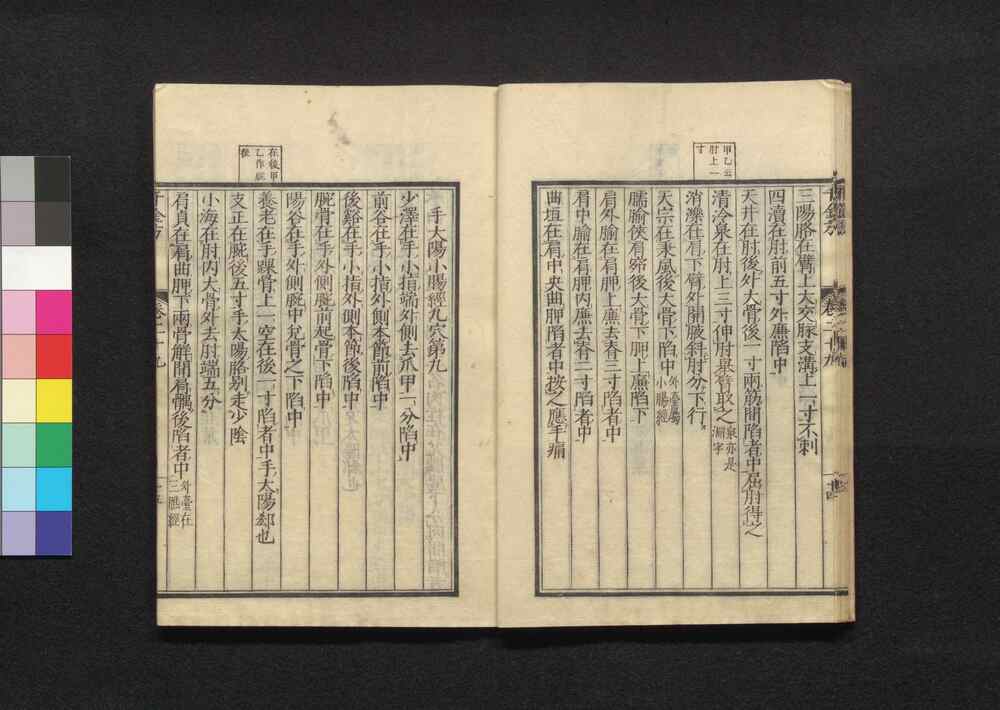 甲乙云
肘上一
寸
三陽胳在臂上大交脉支溝上一寸不刺
四瀆在肘前五寸外廉陷中
天井在肘後外大骨後一寸兩筋間陷者中屈肘得之
清冷泉在肘上三寸伸肘舉臂取之
泉亦是
淵字
消濼在肩下臂外關腋斜肘分下行
天宗在秉風後大骨下陷中
外臺屬
小腸經
臑腧俠肩窌後大骨下胛上廉陷下
肩外腧在肩胛上廉去脊三寸陷者中
肩中腧在肩胛內廉去脊二寸陷者中
曲垣在肩中央曲胛陷者中按之應手痛
卷二十九
在後甲
乙作踝
手太陽小腸經九穴第九
少澤在手小指端外側去爪甲一分陷中
前谷在手小指外側本節前陷中
後谿在手小指外側本節後陷中
腕骨在手外側腕前起骨下陷中
陽谷在手外側腕中兌骨之下陷中
養老在手踝骨上一空在後一寸陷者中手太陽郄也
支正在腕後五寸手太陽胳別走少陰
小海在肘內大骨外去肘端五分
肩貞在肩曲胛下兩骨解間肩髃後陷者中
外臺在
三焦經